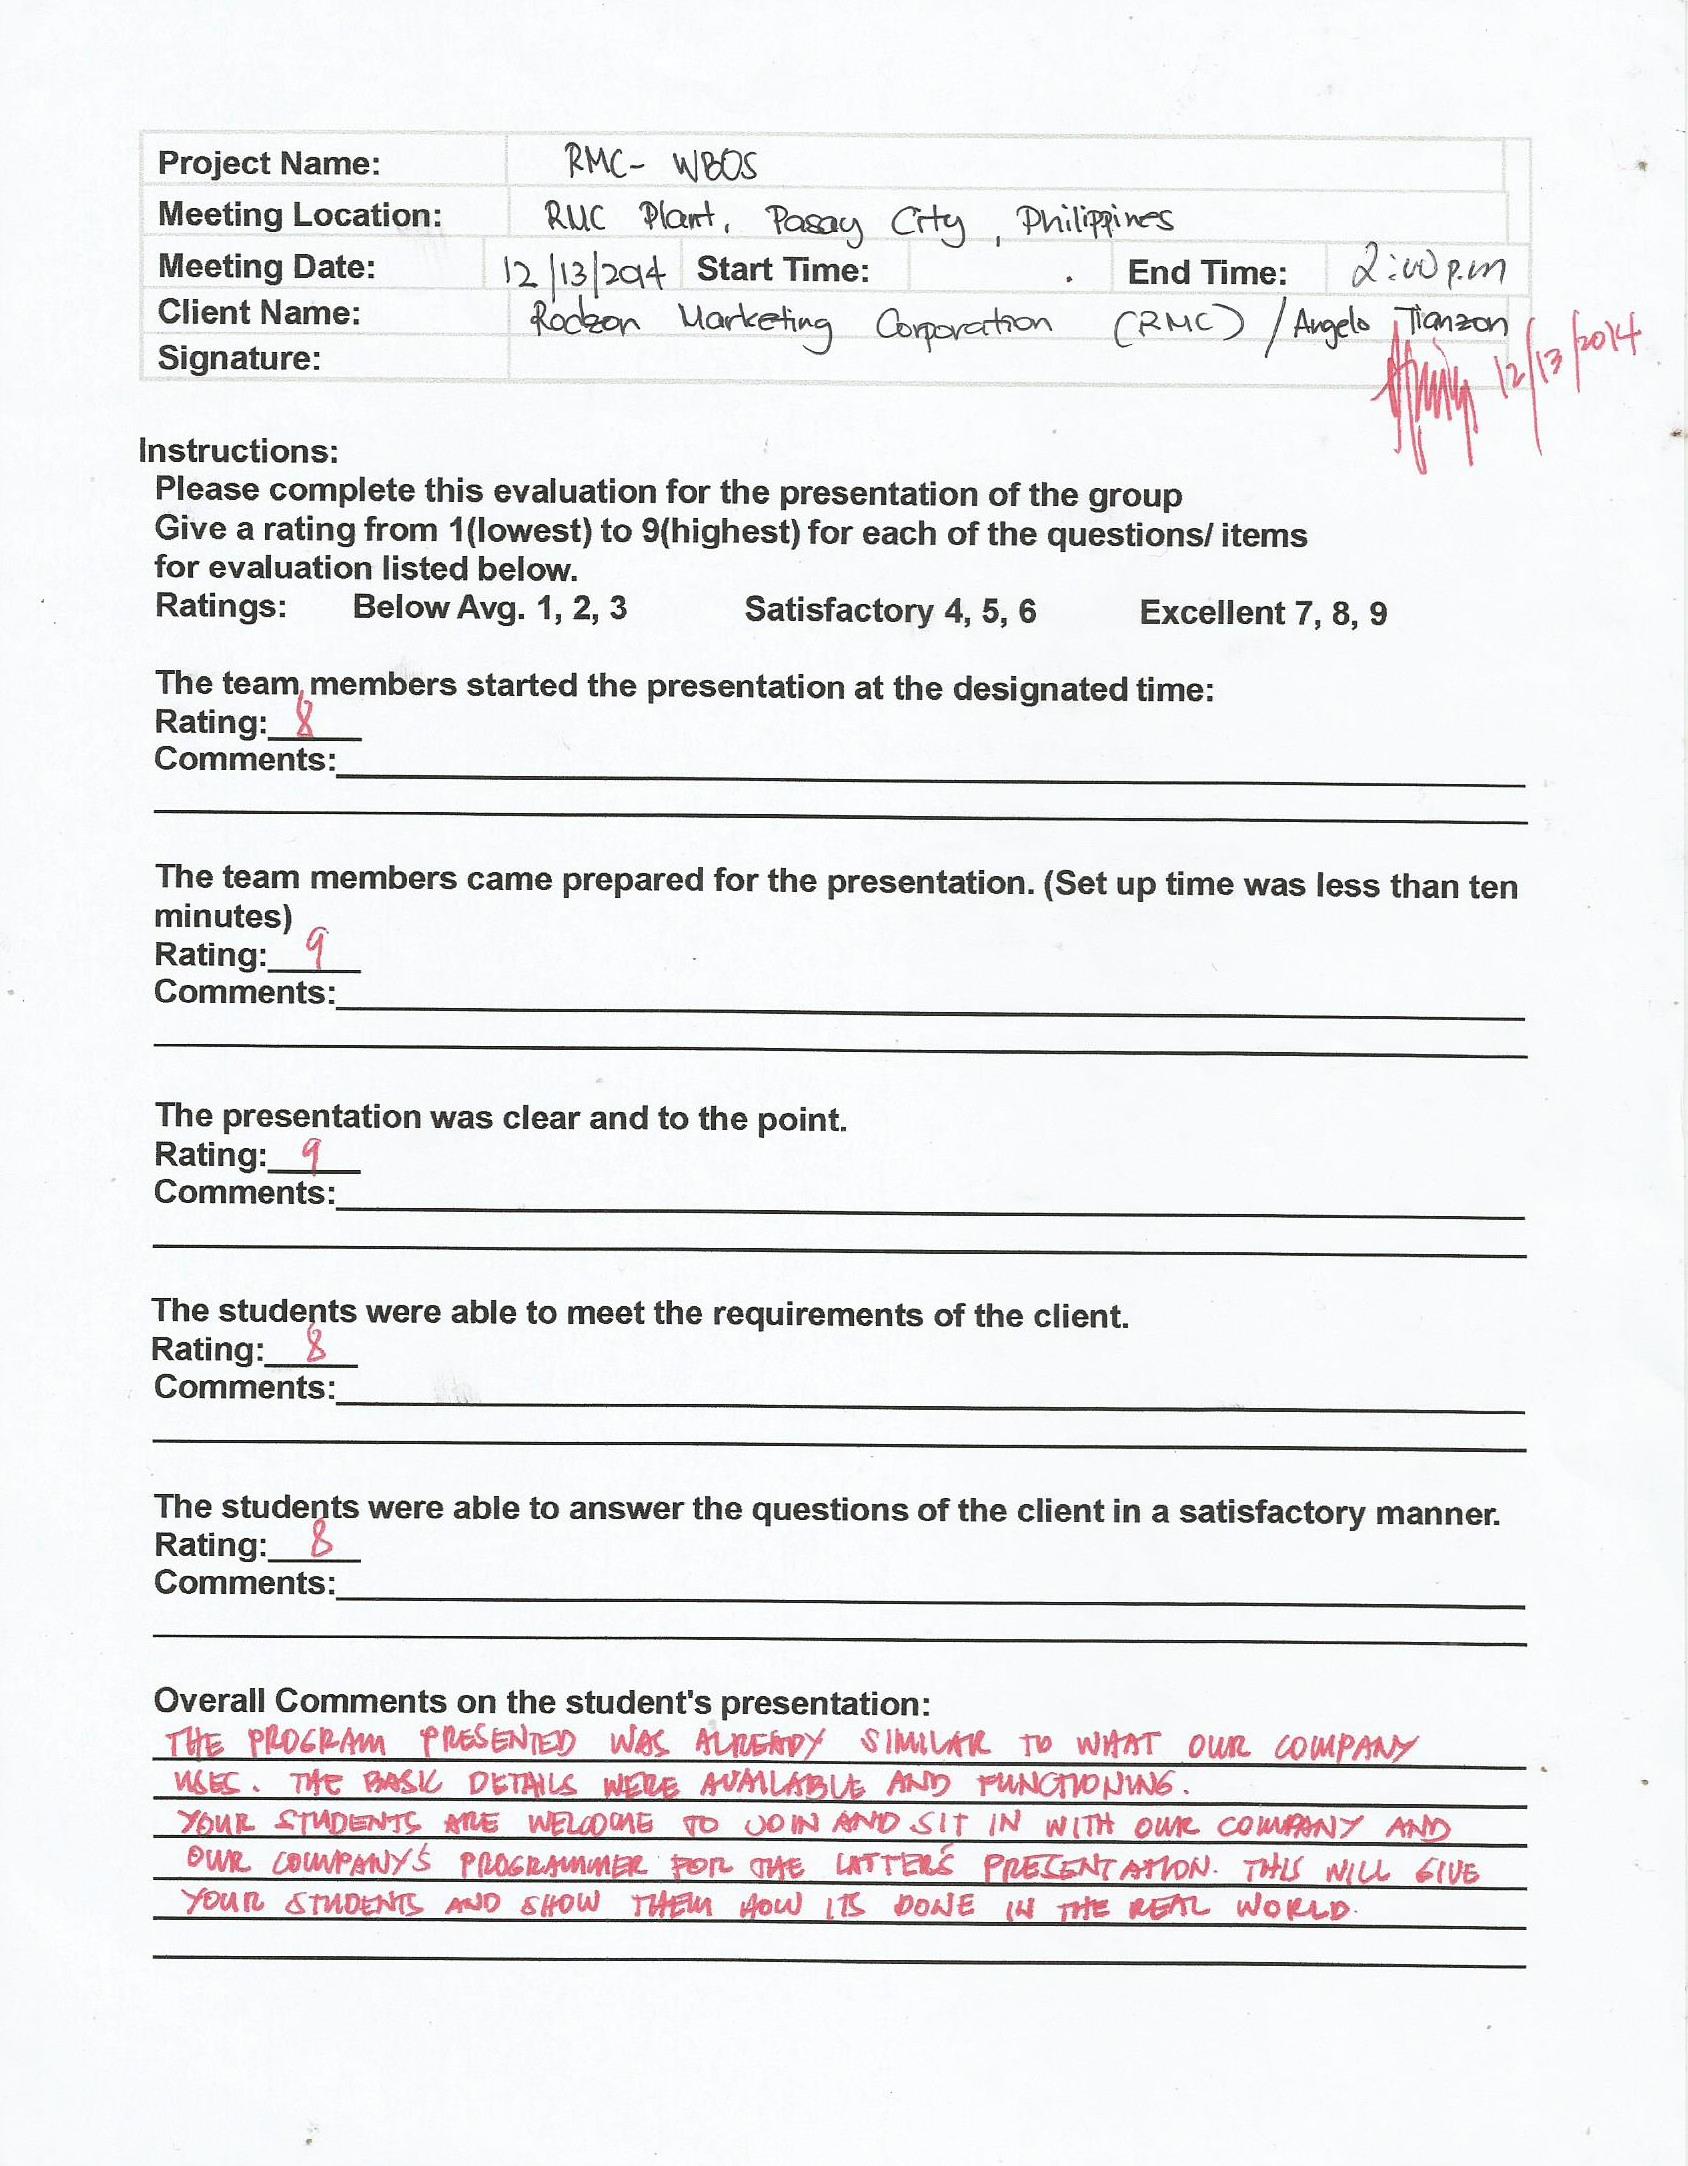 Project Name: RMC- WBOS
Meeting Location: RMC Plant, Pasay City, Philippines
Meeting Date: 12/13/2014 Start Time: End Time: 2:00 p.m
Client Name: Rodzon Marketing Corporation (RMC) / Angelo Tianzon
Signature: 12/13/2014
Instructions:
Please complete this evaluation for the presentation of the group
Give a rating from 1(lowest) to 9(highest) for each of the questions/ items
for evaluation listed below.
Ratings: Below Avg. 1, 2, 3 Satisfactory 4, 5, 6 Excellent 7, 8, 9
The team members started the presentation at the designated time:
Rating: 8
Comments:
The team members came prepared for the presentation. (Set up time was less than ten
minutes)
Rating: 9
Comments:
The presentation was clear and to the point.
Rating: 9
Comments:
The students were able to meet the requirements of the client.
Rating: 8
Comments:
The students were able to answer the questions of the client in a satisfactory manner.
Rating: 8
Comments:
Overall Comments on the student's presentation:
THE PROGRAM PRESENTED WAS ALREADY SIMILAR TO WHAT OUR COMPANY
USES. THE BASIC DETAILS WERE AVAILABLE AND FUNCTIONING.
YOUR STUDENTS ARE WELCOME TO JOIN AND SIT IN WITH OUR COMPANY AND
OUR COMPANY'S PROGRAMMER FOR THE LATTER'S PRESENTATION. THIS WILL GIVE
YOUR STUDENTS AND SHOW THEM HOW ITS DONE IN THE REAL WORLD.